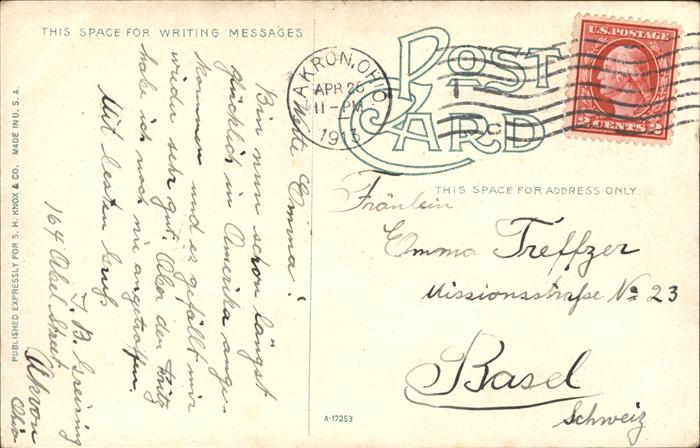 THIS SPACE FOR WRITING MESSAGES
POST CARD
AKRON, OHIO
APR 26
11-PM
1913
U.S. POSTAGE
2 CENTS 2
THIS SPACE FOR ADDRESS ONLY.
Fräulein
Emma Treffzer
Missionsstraße No 23
Basel
Schweiz
Emma!
Bin nun schon längst
glücklich in Amerika ange-
kommen und es gefällt mir
wieder sehr gut. Aber den Fritz
habe ich noch nie angetroffen.
Mit besten Gruß
164 Abel Street
Akron
Ohio
A-17253
PUBLISHED EXPRESSLY FOR S. H. KNOX & CO. MADE IN U. S. A.